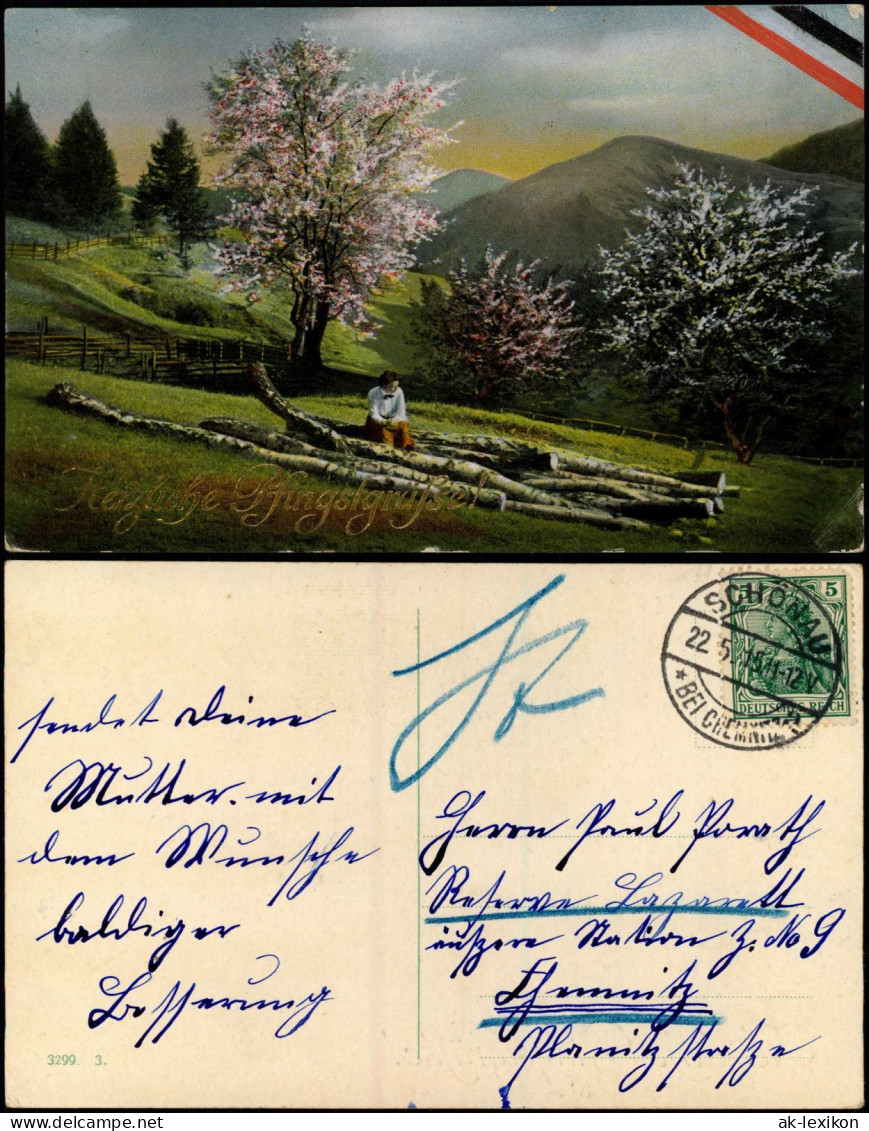 Herzliche Pfingstgrüße!
SCHÖNAU
22 5 15 11-12 V
* BEI CHEMNITZ
5 5
DEUTSCHES REICH
sendet Deine
Mutter. mit
dem Wunsche
baldiger
Besserung
Herrn Paul Porath
Reserve Lazarett
äußere Station Z. No 9
Chemnitz
Planitzstraße
3299. 3.
ak-lexikon